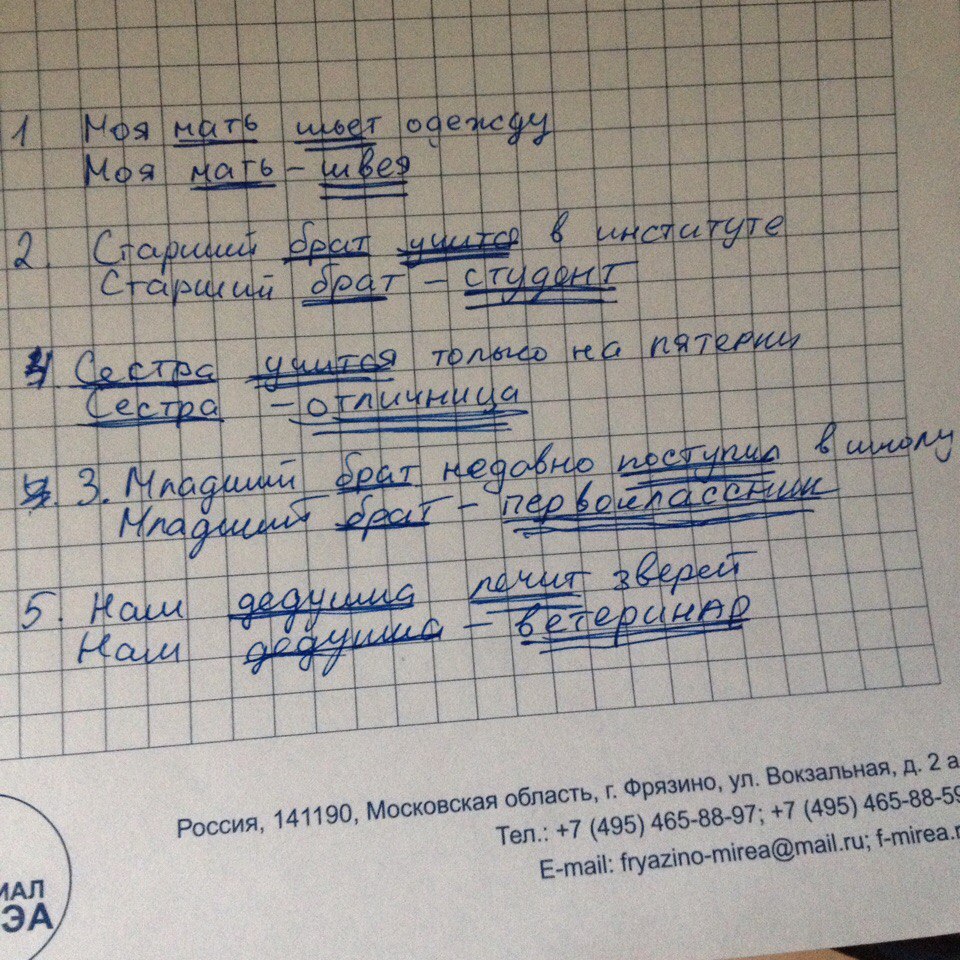 1 Моя мать шьет одежду
Моя мать – швея
2. Старший брат учится в институте
Старший брат – студент
4. Сестра учится только на пятерки
Сестра – отличница
3. Младший брат недавно поступил в школу
Младший брат – первоклассник
5. Наш дедушка лечит зверей
Наш дедушка – ветеринар
Россия, 141190, Московская область, г. Фрязино, ул. Вокзальная, д. 2 а
Тел.: +7 (495) 465-88-97; +7 (495) 465-88-59
E-mail: fryazino-mirea@mail.ru; f-mirea.r
ИАЛ
ЭА